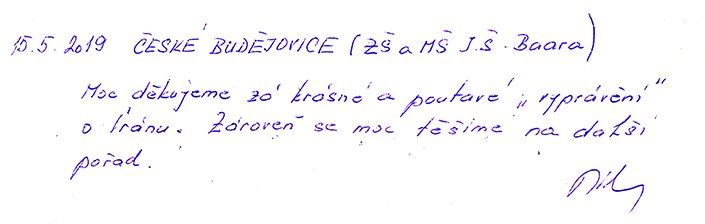 15.5.2019 ČESKÉ BUDĚJOVICE (ZŠ a MŠ J.Š. Baara)
Moc děkujeme za krásné a poutavé „vyprávění"
o Íránu. Zároveň se moc těšíme na další
pořad.